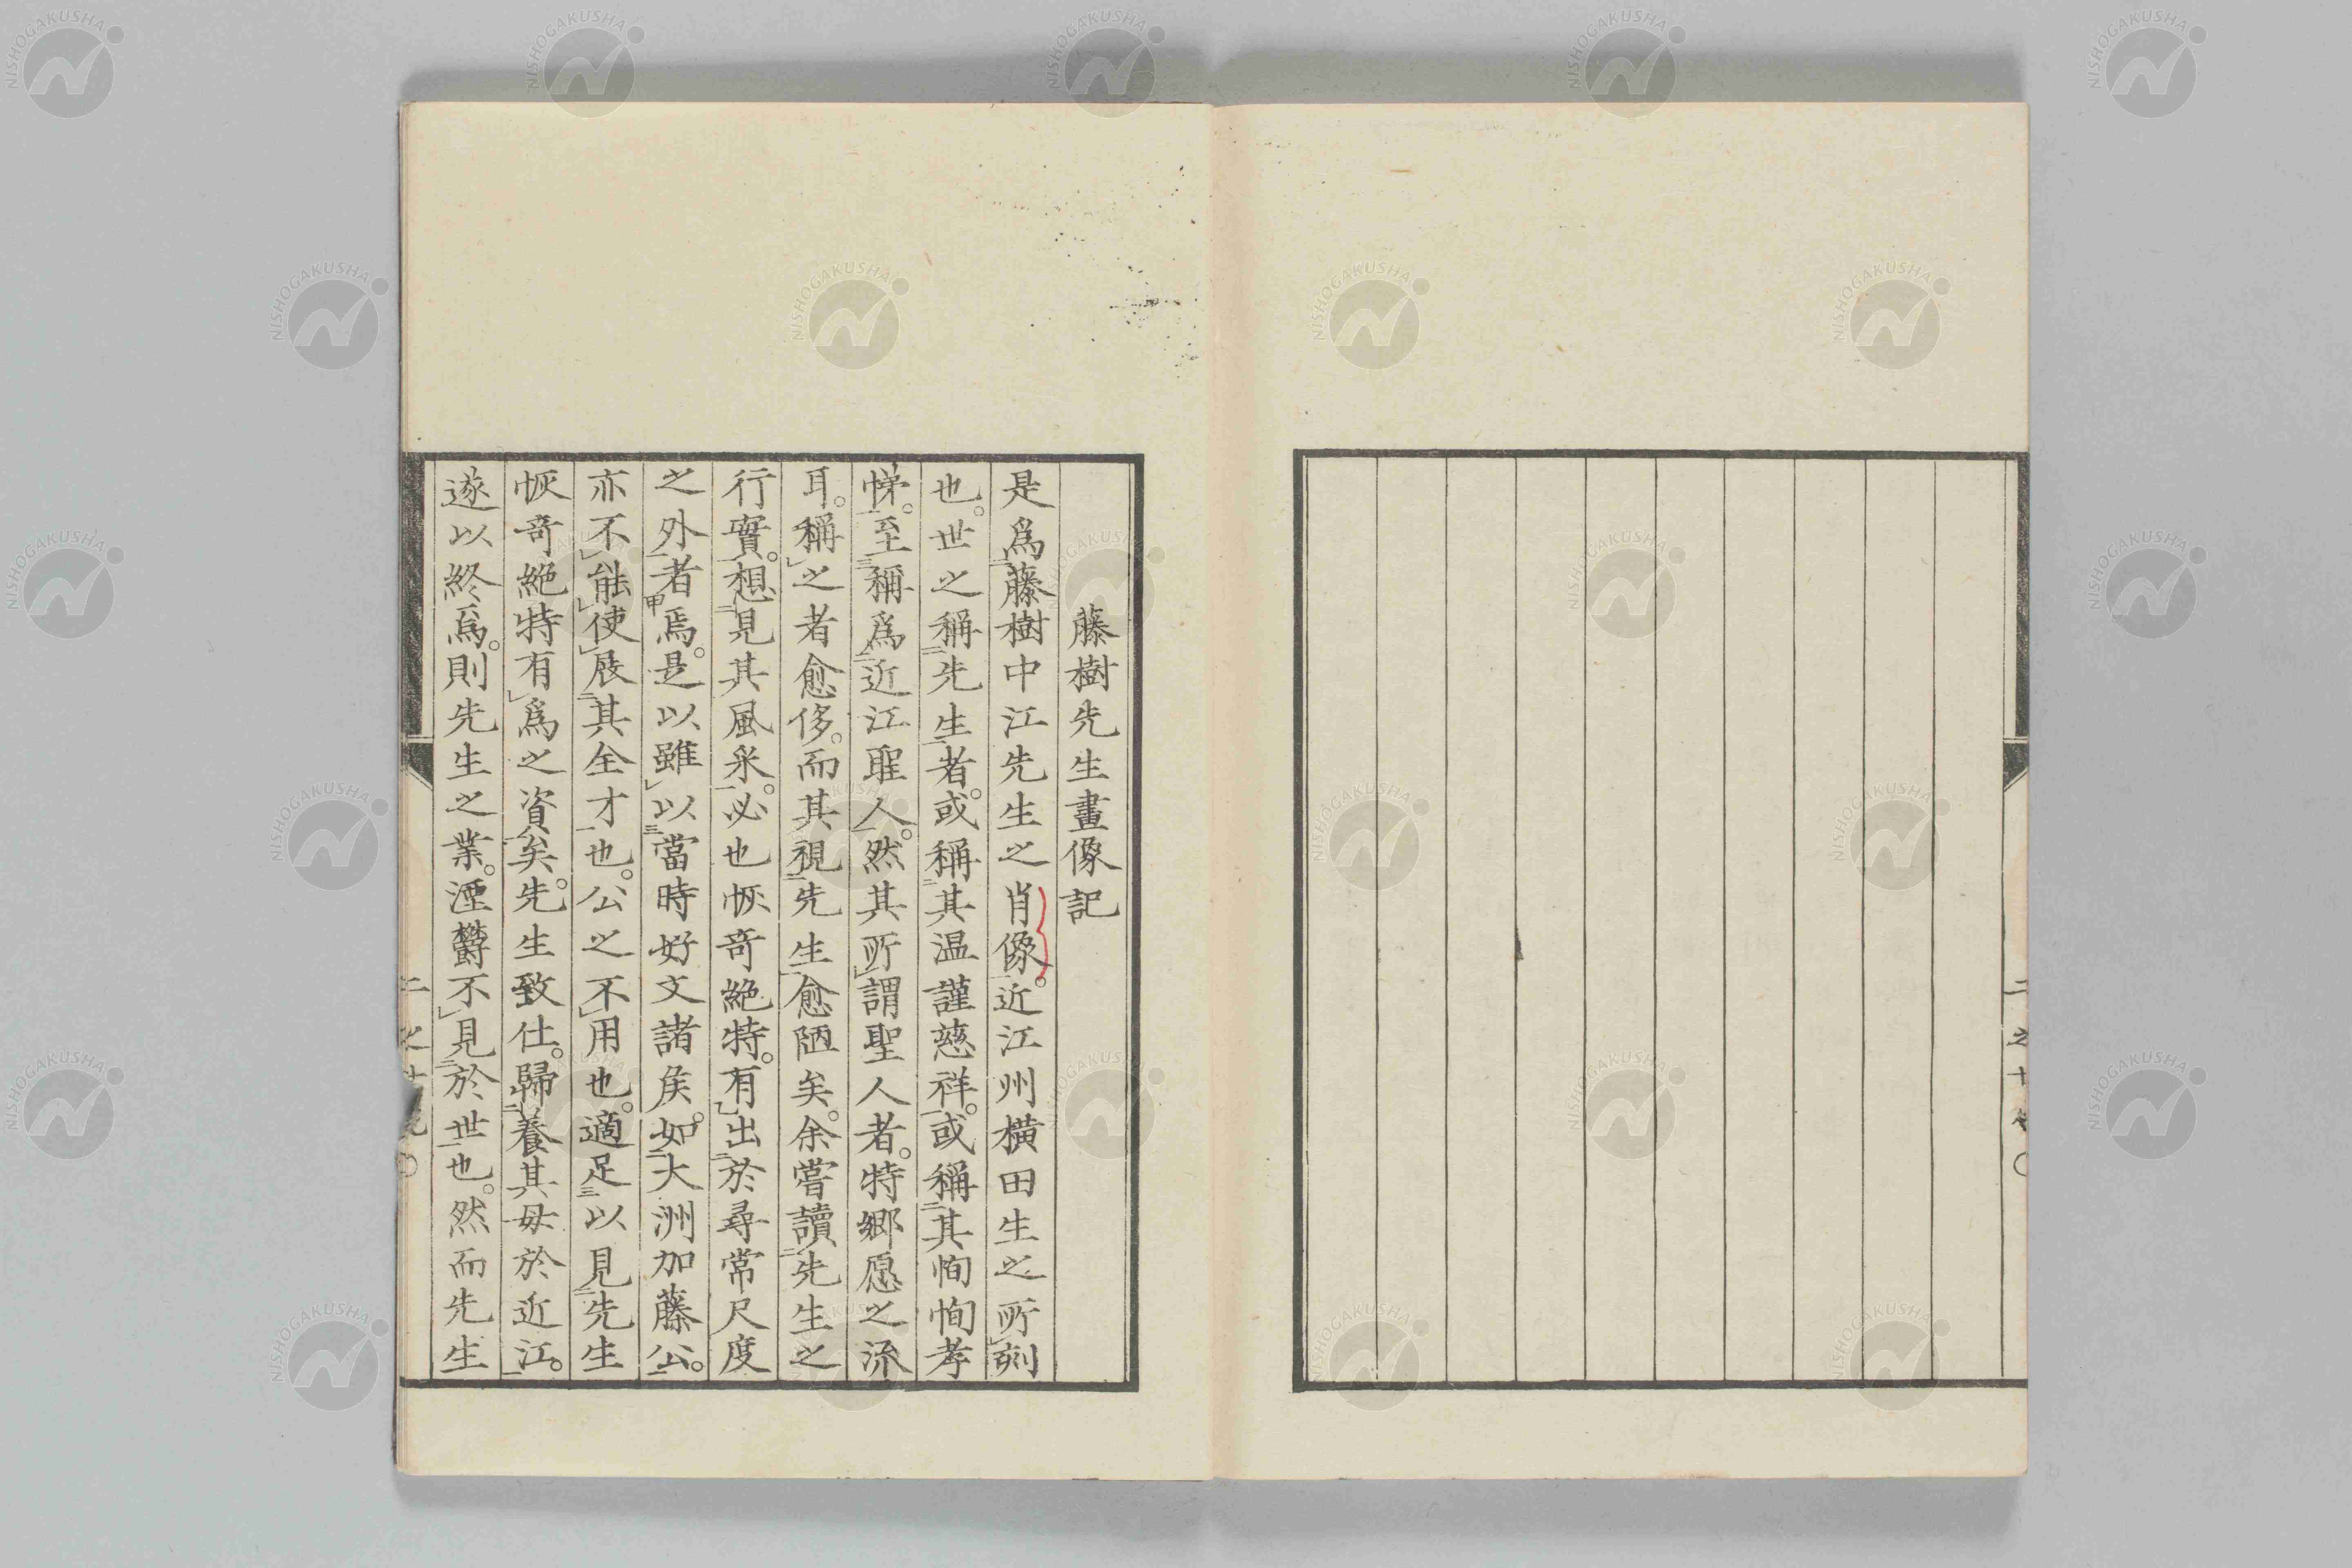 藤樹先生畫像記
是爲藤樹中江先生之肖像。近江州橫田生之所刻
也。世之稱先生者。或稱其温謹慈祥。或稱其恂恂孝
悌。至稱爲近江聖人。然其所謂聖人者。特郷愿之流
耳。稱之者愈侈。而其視先生愈陋矣。余嘗讀先生之
行實。想見其風采。必也恢奇絶特。有出於尋常尺度
之外者焉。是以雖以當時好文諸矦。如大洲加藤公。
亦不能使展其全才也。公之不用也。適足以見先生
恢奇絶特有爲之資矣。先生致仕。歸養其母於近江。
遂以終焉。則先生之業。湮欝不見於世也。然而先生